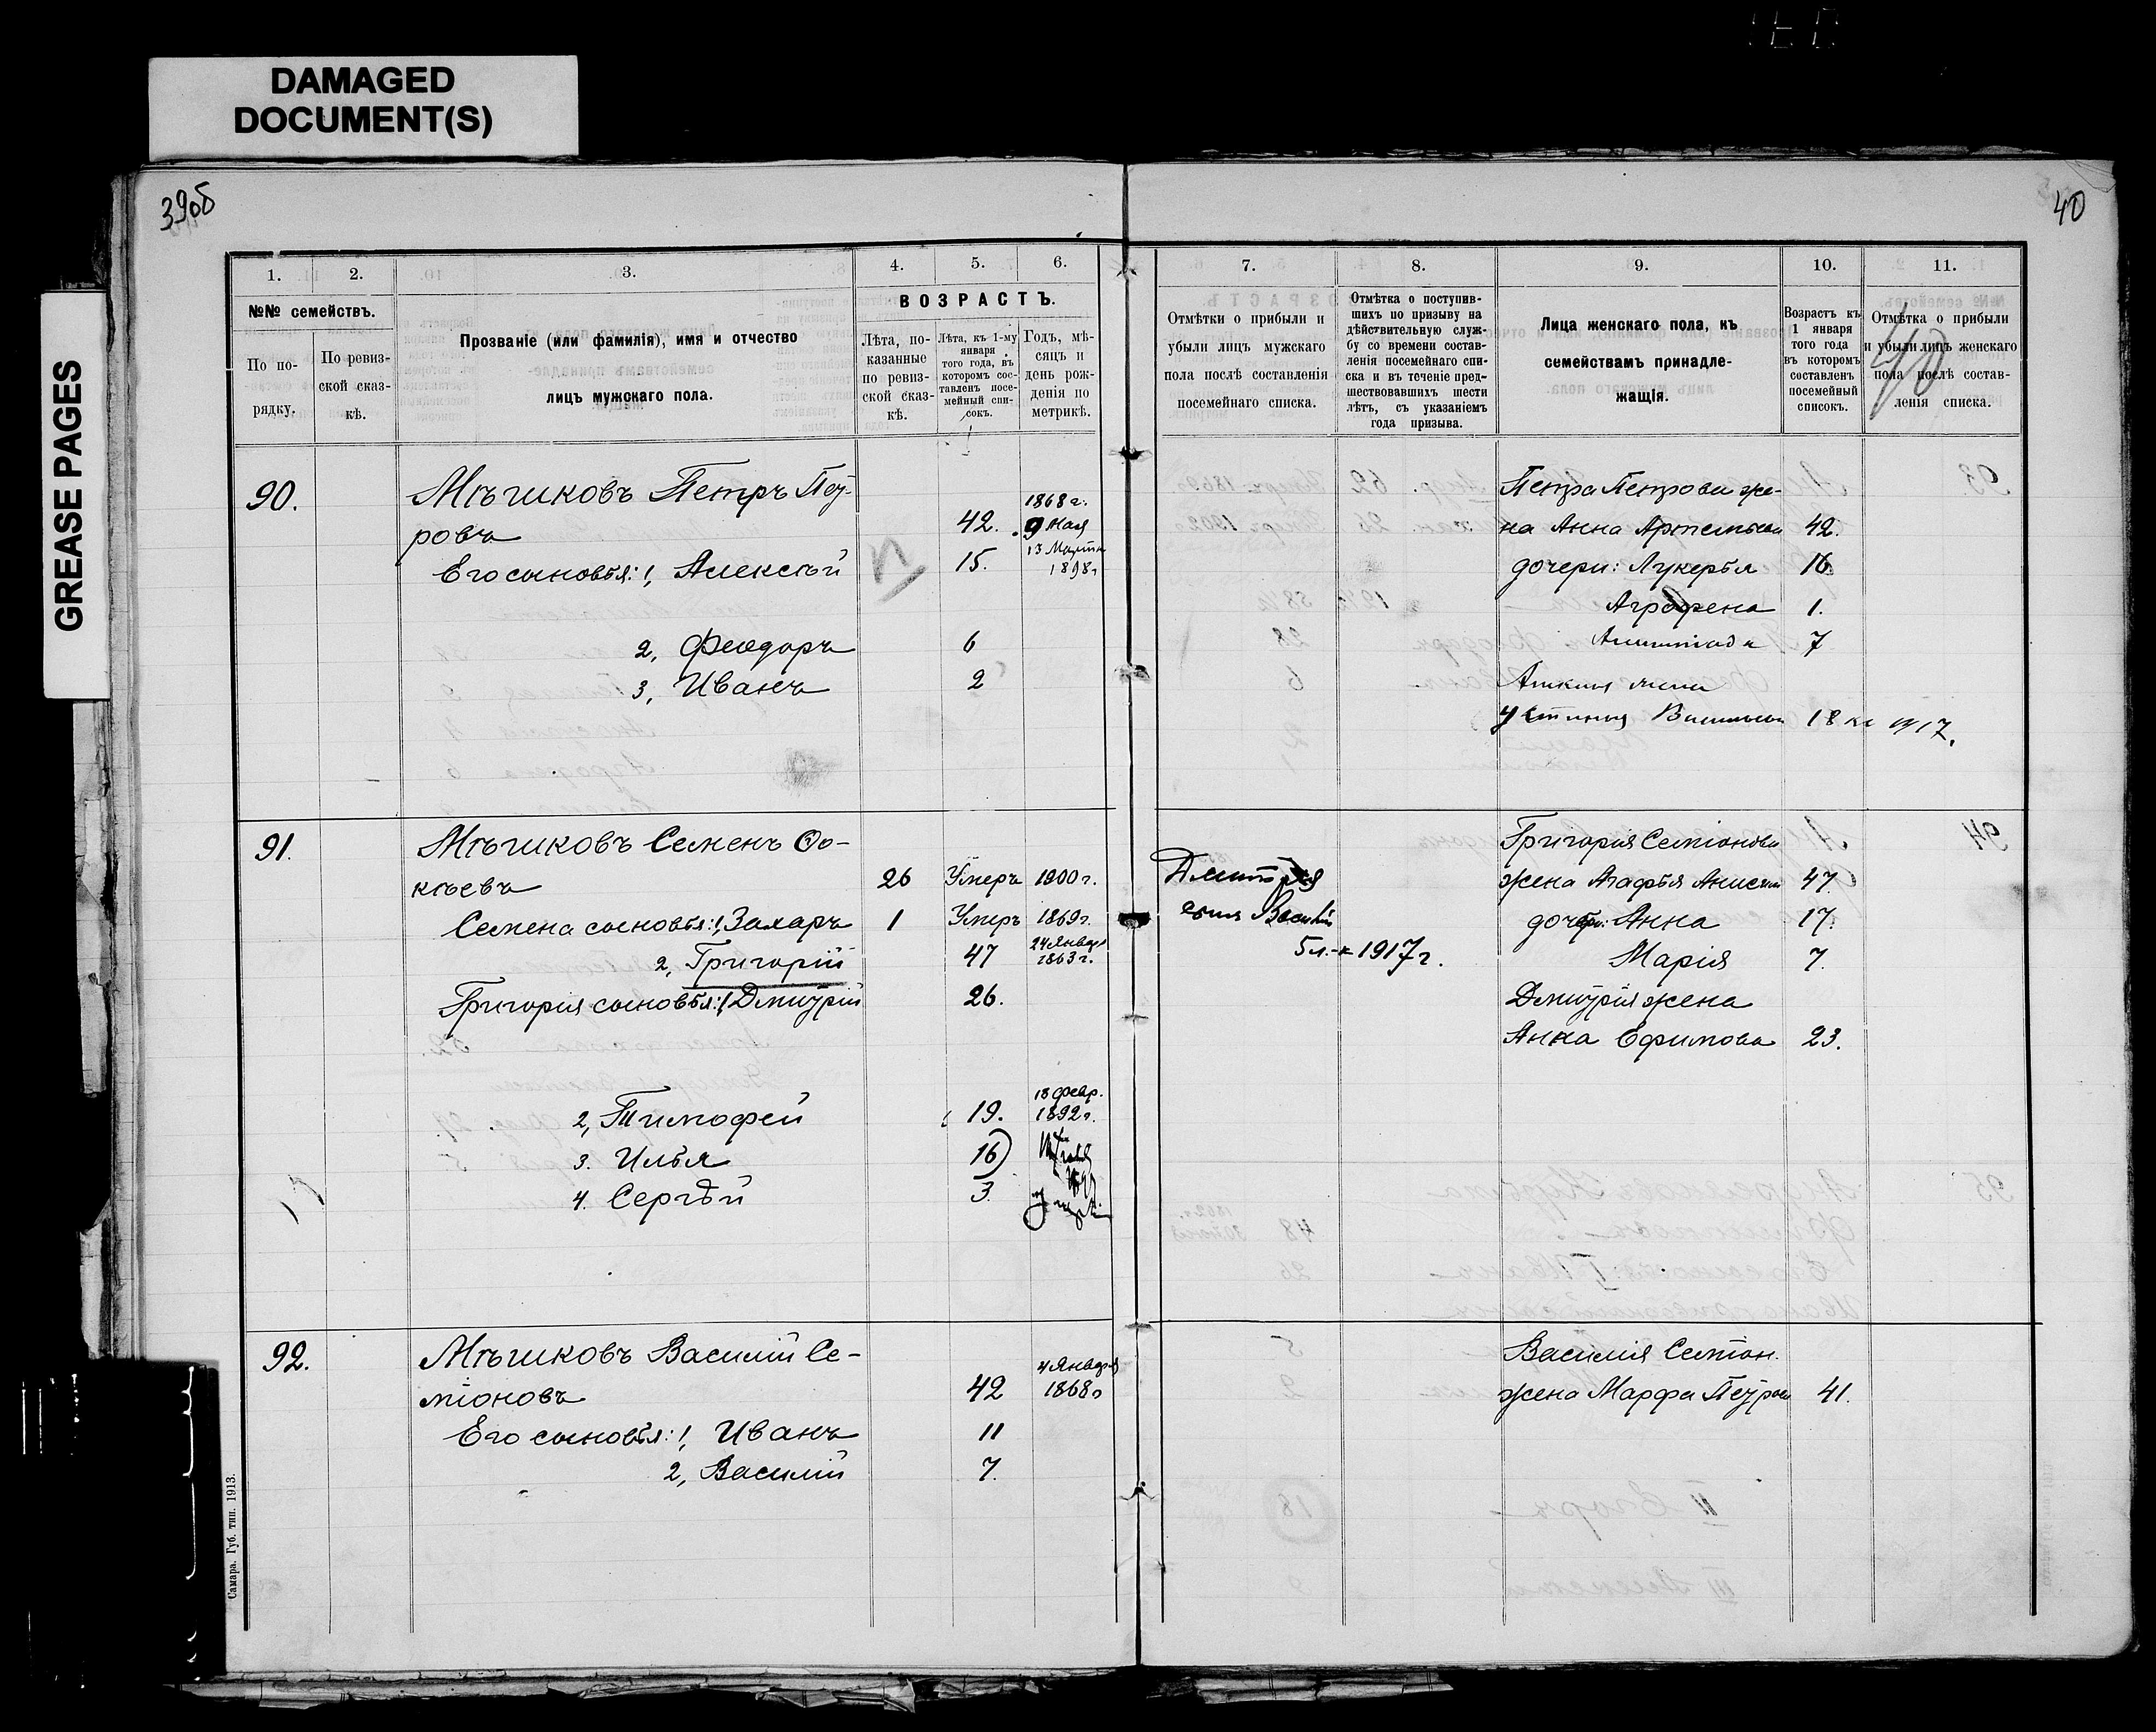 DAMAGED
DOCUMENT(S)
GREASE PAGES
39об
40
1.
2.
3.
4.
5.
6.
№№ семействъ.
ВОЗРАСТЪ.
По по-
рядку.
По ревиз-
ской сказ-
кѣ.
Прозваніе (или фамилія), имя и отчество
лицъ мужскаго пола.
Лѣта, по-
казанные
по ревиз-
ской сказ-
кѣ.
Лѣта, къ 1-му
января
того года, въ
которомъ сос-
тавленъ посе-
мейный спи-
сокъ.
Годъ, мѣ-
сяцъ и
день рож-
денія по
метрикѣ.
90.
Мѣшковъ Петръ Пет-
ровъ
42.
1868 г.
9 мая
Его сыновья: 1, Алексѣй
15.
13 Марта
1898 г
2, Феодоръ
6
3, Иванъ
2
91.
Мѣшковъ Семенъ Фо-
кѣевъ
26
Умеръ 1900 г.
Семена сыновья: 1, Захаръ
1
Умеръ 1869 г.
2, Григорій
47
24 Января
1863 г.
Григорія сыновья: 1, Дмитрій
26.
2, Тимофей
19.
18 февр.
1892 г.
3. Илья
16
4. Сергѣй
3
92.
Мѣшковъ Василій Се-
міоновъ
42
4 Января
1868 г
Его сыновья: 1, Иванъ
11
2, Василій
7.
Самара. Губ. тип. 1913.
7.
8.
9.
10.
11.
Отмѣтки о прибыли и
убыли лицъ мужскаго
пола послѣ составленія
посемейнаго списка.
Отмѣтка о поступив-
шихъ по призыву на
дѣйствительную служ-
бу со времени состав-
ленія посемейнаго спи-
ска и въ теченіе пред-
шествовавшихъ шести
лѣтъ, съ указаніемъ
года призыва.
Лица женскаго пола, къ
семействамъ принадле-
жащія.
Возрастъ къ
1 января
того года
въ которомъ
составленъ
посемейный
списокъ.
Отмѣтка о прибыли
и убыли лицъ женскаго
пола послѣ состав-
ленія списка.
40
Петра Петрова же-
на Анна Артемьева 42.
дочери: Лукерья 16
Аграфена 1.
7
жена
Устинья Васильева 18 к 1917.
Григорія Семіонова
жена Агафья 47
дочери: Анна 17.
Марія 7.
Дмитрія жена
Анна Ефимова 23.
Дмитрія
сынъ Василій
5 л. к 1917 г.
Василія Семіон.
жена Марфа Петрова 41.